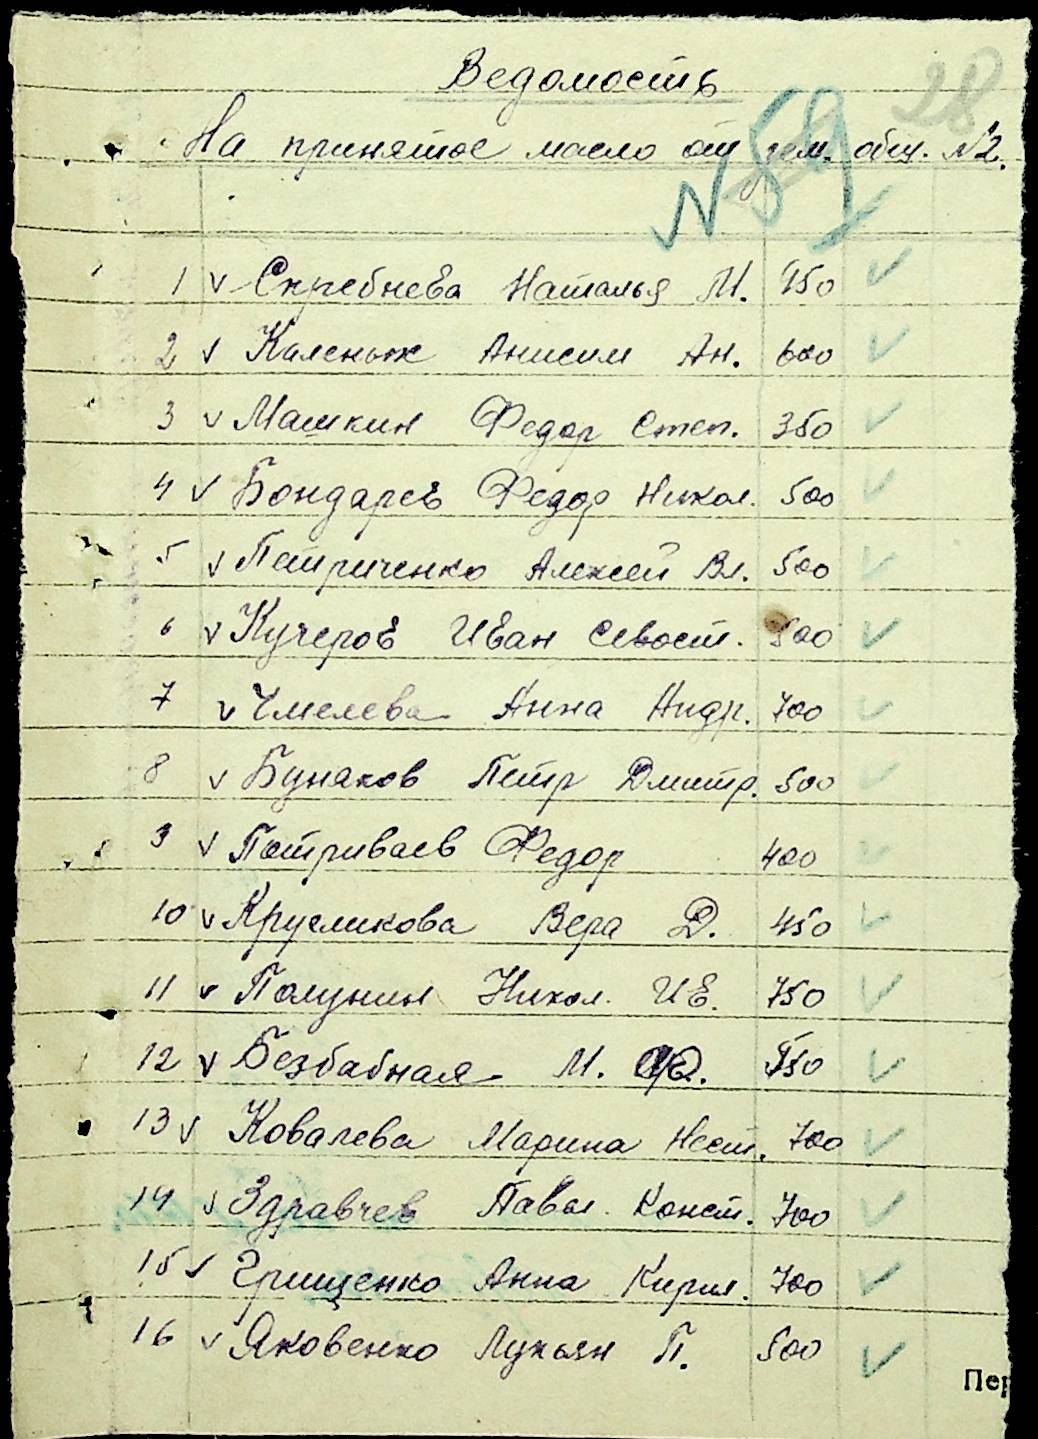 28
Ведомость
На принятое масло от зем. общ. №2.
№ 59
1 Скребнева Наталья М. 450
2 Каленюк Анисим Ан. 600
3 Машкин Федор Степ. 350
4 Бондарев Федор Никол. 500
5 Петриченко Алексей Вл. 500
6 Кучеров Иван Севост. 500
7 Чмелева Анна Андр. 700
8 Бунаков Петр Дмитр. 500
9 Потриваев Федор 400
10 Кругликова Вера Д. 450
11 Полунин Никол. Ив. 750
12 Безбабная М. 550
13 Ковалева Марина Нест. 700
14 Здравчев Павел Конст. 700
15 Грищенко Анна Кирил. 700
16 Яковенко Лукьян П. 500
Пер